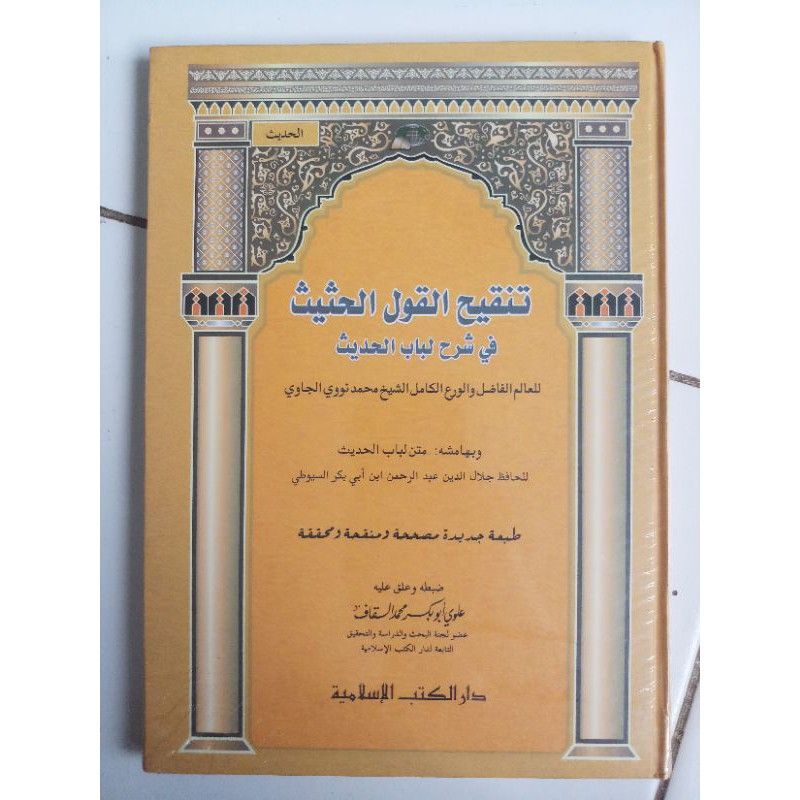 الحديث
تنقيح القول الحثيث
في شرح لباب الحديث
للعالم الفاضل والورع الكامل الشيخ محمد نووي الجاوي
وبهامشه: متن لباب الحديث
للحافظ جلال الدين عبد الرحمن ابن أبي بكر السيوطي
طبعة جديدة مصححة ومنقحة ومحققة
ضبطه وعلق عليه
علوي أبو بكر محمد السقاف
عضو لجنة البحث والدراسة والتحقيق
التابعة لدار الكتب الإسلامية
دار الكتب الإسلامية